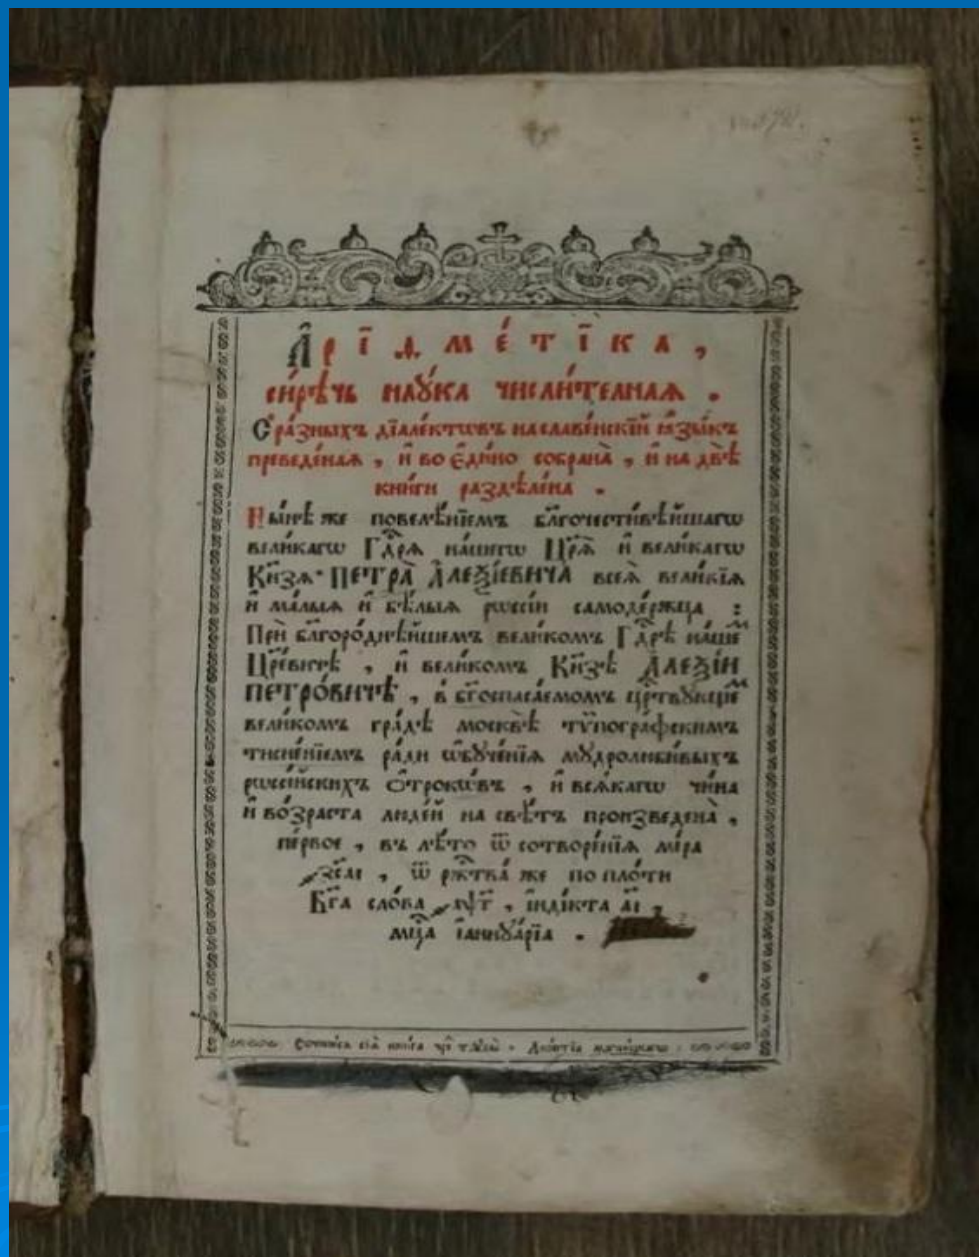 А҆рїѳме́тїка,
си́рѣчь наꙋ́ка числи́телнаѧ.
С̾ ра́зныхъ дїале́ктѡвъ на славе́нскїй ѧ҆зы́къ
преведе́наѧ, и҆ во є҆ди́но собрана̀, и҆ на двѣ̀
кни́ги раздѣле́на.
Ны́нѣ же повелѣ́нїемъ бл҃гочести́вѣйшагѡ
вели́кагѡ Гдⷭ҇рѧ на́шегѡ Цр҃ѧ̀ и҆ вели́кагѡ
Кн҃зѧ ПЕТРА̀ А҆ЛЕѮІ́ЕВИЧА всеѧ̀ вели́кїѧ
и҆ ма́лыѧ и҆ бѣ́лыѧ рѡссі́и самоде́ржца:
Прѝ бл҃горо́днѣйшемъ вели́комъ Гдⷭ҇рѣ на́шеⷨ
Цр҃е́вичѣ, и҆ вели́комъ Кн҃зѣ А҆ЛЕѮІ́И
ПЕТРО́ВИЧѢ, в̾ бг҃оспаса́емомъ црⷭ҇твꙋющеⷨ
вели́комъ гра́дѣ москвѣ̀ тѷпогра́фскимъ
тисне́нїемъ ра́ди ѡ҆бꙋче́нїѧ мꙋдролюби́выхъ
рѡссі́йскихъ ѻ҆́трокѡвъ, и҆ всѧ́кагѡ чи́на
и҆ во́зраста люде́й на свѣ́тъ произведена̀,
пе́рвое, въ лѣ́то ѿ сотворе́нїѧ мі́ра
҂зсаі, ѿ ржⷭ҇тва́ же по пло́ти
Бг҃а сло́ва ҂аѱг҃, і҆нди́кта а҃і,
мцⷭ҇а і҆аннꙋа́рїа.
Сочини́сѧ сїѧ̀ кни́га чрⷥ҇ трꙋды̀ Лео́нтїа магни́цкагѡ